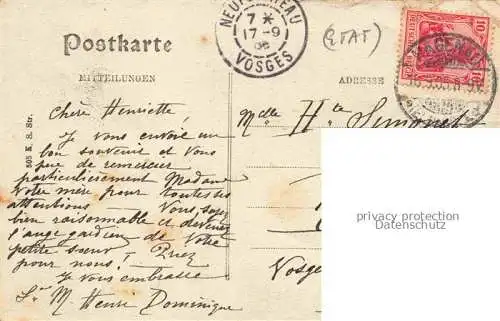 NEUFCHATEAU
7 *
17-9
06
VOSGES
(ETAT)
HAGENAU
10
10
Postkarte
MITTEILUNGEN
ADRESSE
505 K. S. Str.
Chère Henriette
Je vous envoie un
bon souvenir et vous
prie de remercier
particulièrement Madame
votre mère pour toutes ses
attentions. Vous, soyez
bien raisonnable et devenez
l'ange gardien de votre
petite sœur! Priez
pour nous!
Je vous embrasse
Sr M. Henre Dominique
Melle Hte Simonet
Vosges
privacy protection
Datenschutz